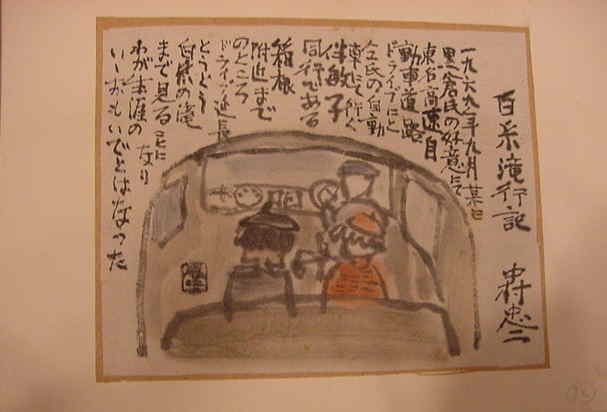 白糸滝行記　中村忠二
一九六九年九月某日
黒倉氏の好意にて
東名高速自
動車道路
ドライブにと
仝氏の自動
車にて行く
伴敏子
同行である
箱根
附近まで
のところ
ドライブ延長
とうとう
白糸の滝
まで見ることに
なり
わが生涯の
いいおもいでとはなった